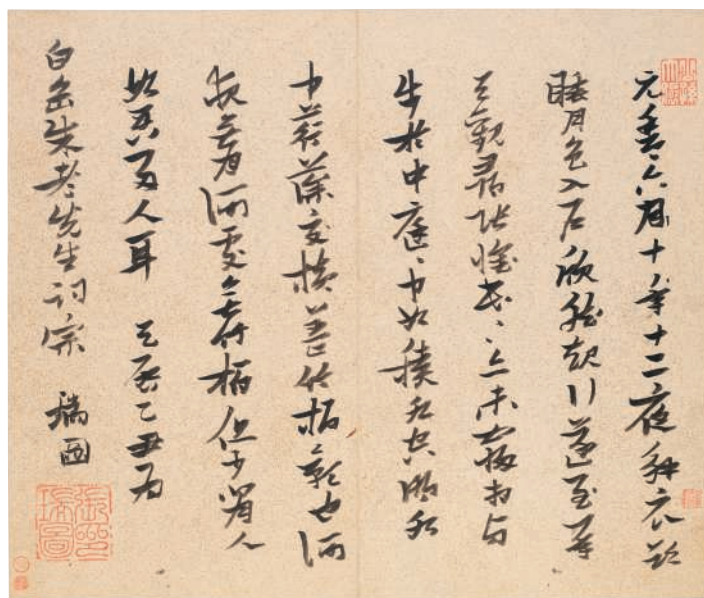 元豐六月十年十二夜解衣欲
睡月色入戶欣然起行遂至承
天觀尋張懷民、亦未寢相與
步於中庭、中如積水空明水
中荇藻交橫蓋竹柏影也何
夜無月何處無竹柏但少閒人
如吾兩人耳 天啓乙丑為
白岳朱老先生詞宗 瑞圖
張瑞圖印